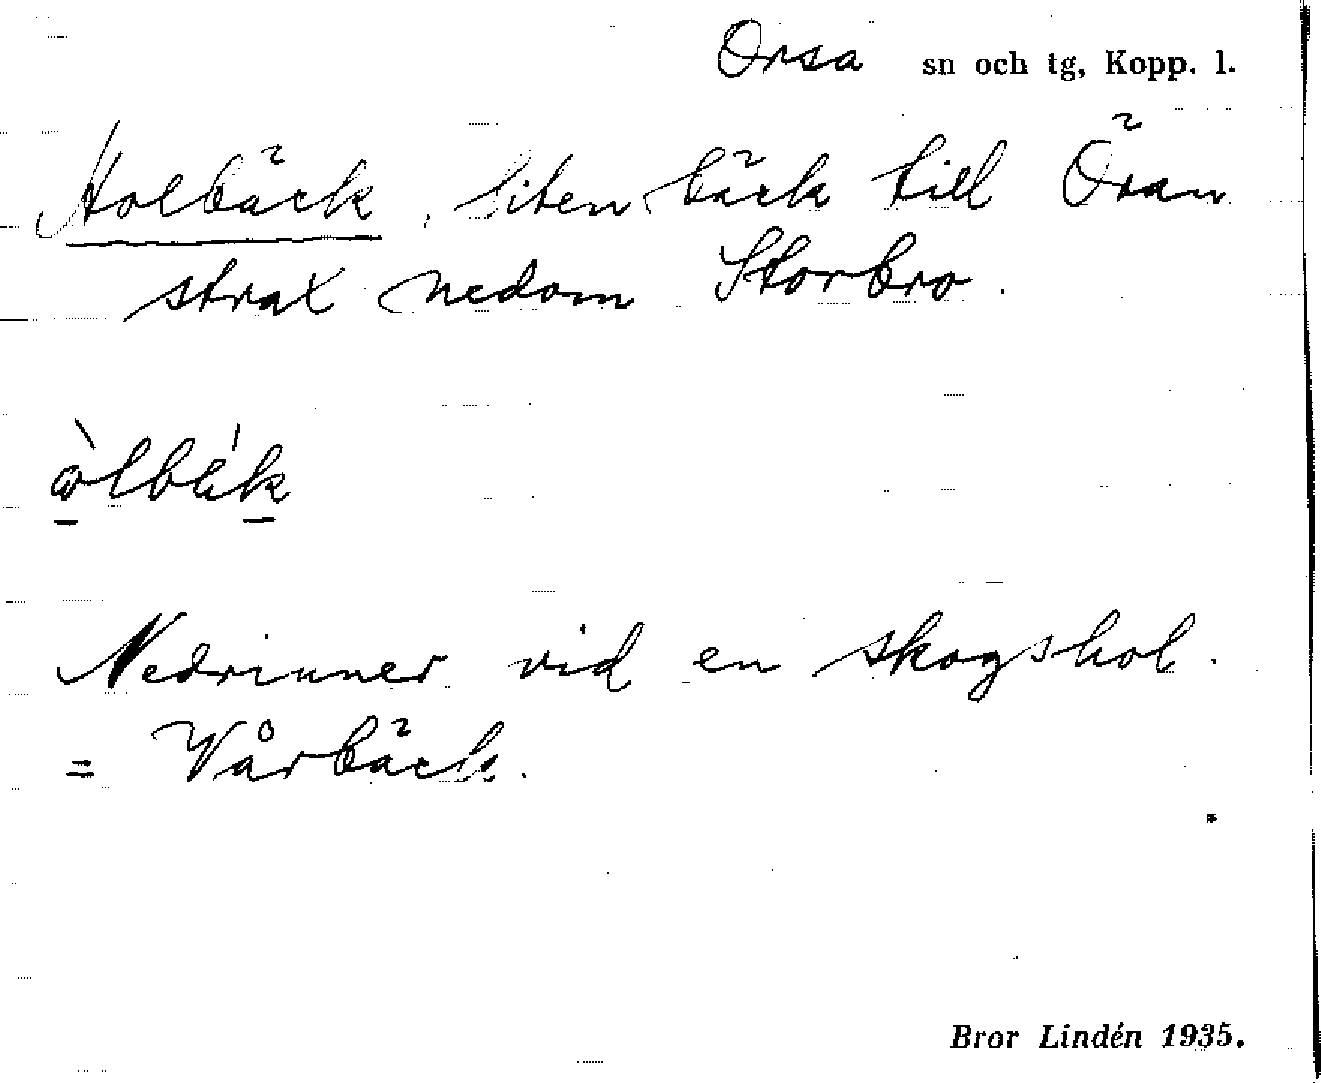 Orsa sn och tg, Kopp. l.
Holbäck, liten bäck till Öran
strax nedom Storbro.
òlbäk
Nedrinner vid en skogshol.
= Vårbäck.
Bror Lindén 1935.